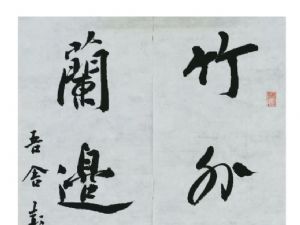 竹外
蘭邊
吾舍